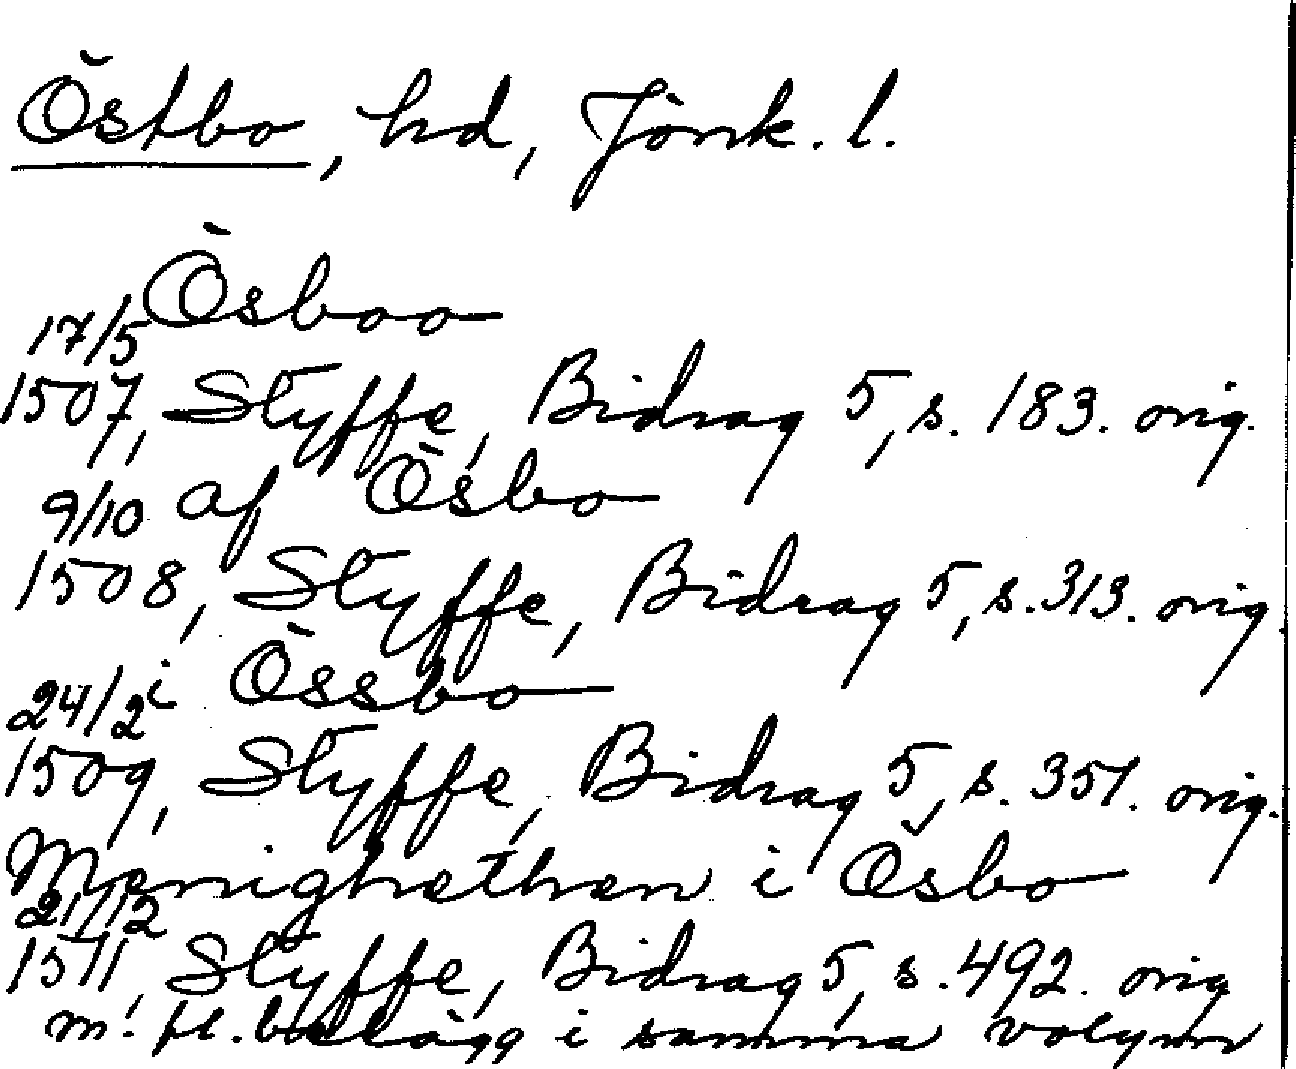 Östbo, hd, Jönk. l.
Ösboo
17/5
1507, Styffe, Bidrag 5, s. 183. orig.
9/10 af Ösbo
1508, Styffe, Bidrag 5, s. 313. orig.
24/2 i Össbo
1509, Styffe, Bidrag 5, s. 351. orig.
Menighethen i Ösbo
21/12
1511, Styffe, Bidrag 5, s. 492. orig
m. fl. belägg i samma volym